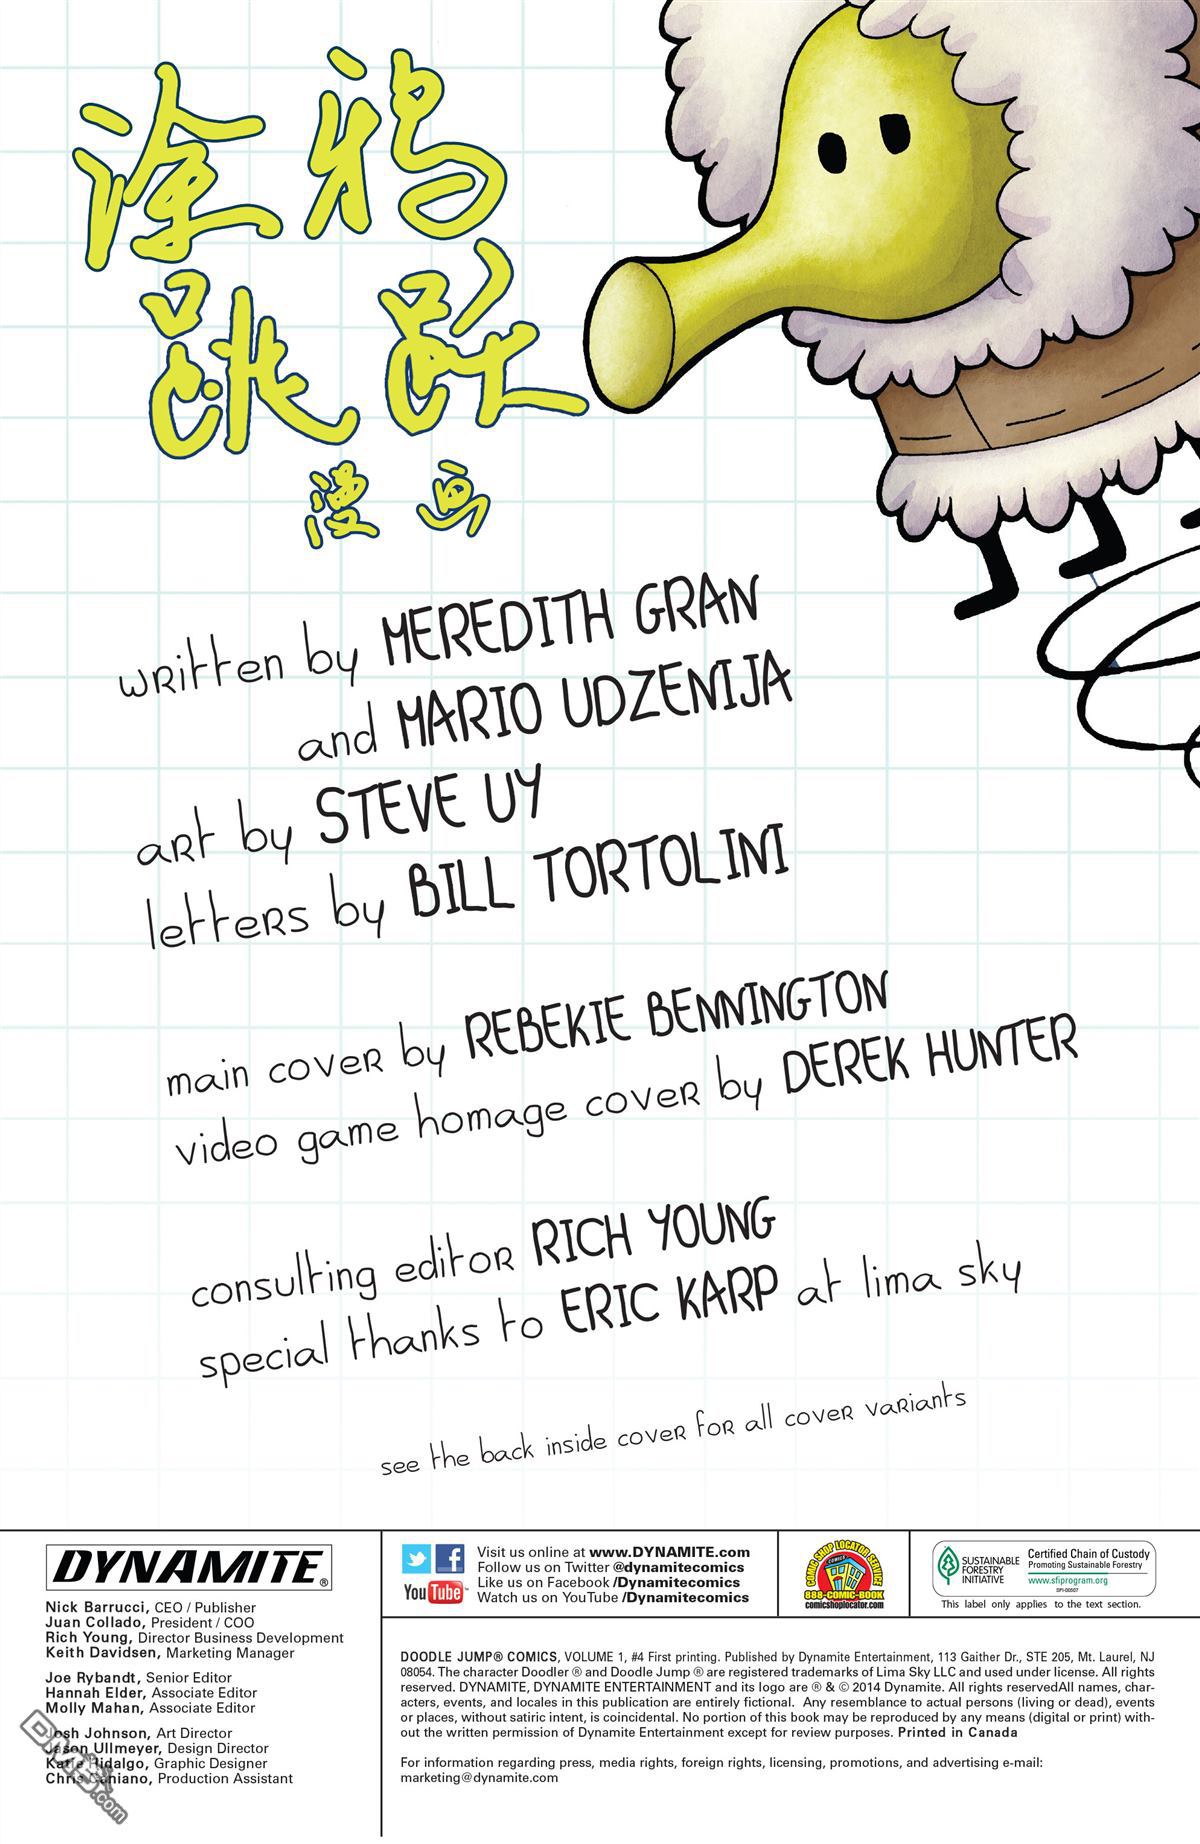 涂鸦
跳跃
漫画
written by MEREDITH GRAN
and MARIO UDZENIJA
art by STEVE UY
letters by BILL TORTOLINI
main cover by REBEKIE BENNINGTON
video game homage cover by DEREK HUNTER
consulting editor RICH YOUNG
special thanks to ERIC KARP at lima sky
see the back inside cover for all cover variants
DYNAMITE®
Nick Barrucci, CEO / Publisher
Juan Collado, President / COO
Rich Young, Director Business Development
Keith Davidsen, Marketing Manager
Joe Rybandt, Senior Editor
Hannah Elder, Associate Editor
Molly Mahan, Associate Editor
Josh Johnson, Art Director
Jason Ullmeyer, Design Director
Katie Hidalgo, Graphic Designer
Chris Caniano, Production Assistant
Visit us online at www.DYNAMITE.com
Follow us on Twitter @dynamitecomics
Like us on Facebook /Dynamitecomics
Watch us on YouTube /Dynamitecomics
You Tube
COMIC SHOP LOCATOR SERVICE
COMICS
888-COMIC-BOOK
comicshoplocator.com
SUSTAINABLE
FORESTRY
INITIATIVE
Certified Chain of Custody
Promoting Sustainable Forestry
www.sfiprogram.org
SFI-00507
This label only applies to the text section.
DOODLE JUMP® COMICS, VOLUME 1, #4 First printing. Published by Dynamite Entertainment, 113 Gaither Dr., STE 205, Mt. Laurel, NJ
08054. The character Doodler ® and Doodle Jump ® are registered trademarks of Lima Sky LLC and used under license. All rights
reserved. DYNAMITE, DYNAMITE ENTERTAINMENT and its logo are ® & © 2014 Dynamite. All rights reservedAll names, char-
acters, events, and locales in this publication are entirely fictional. Any resemblance to actual persons (living or dead), events
or places, without satiric intent, is coincidental. No portion of this book may be reproduced by any means (digital or print) with-
out the written permission of Dynamite Entertainment except for review purposes. Printed in Canada
For information regarding press, media rights, foreign rights, licensing, promotions, and advertising e-mail:
marketing@dynamite.com